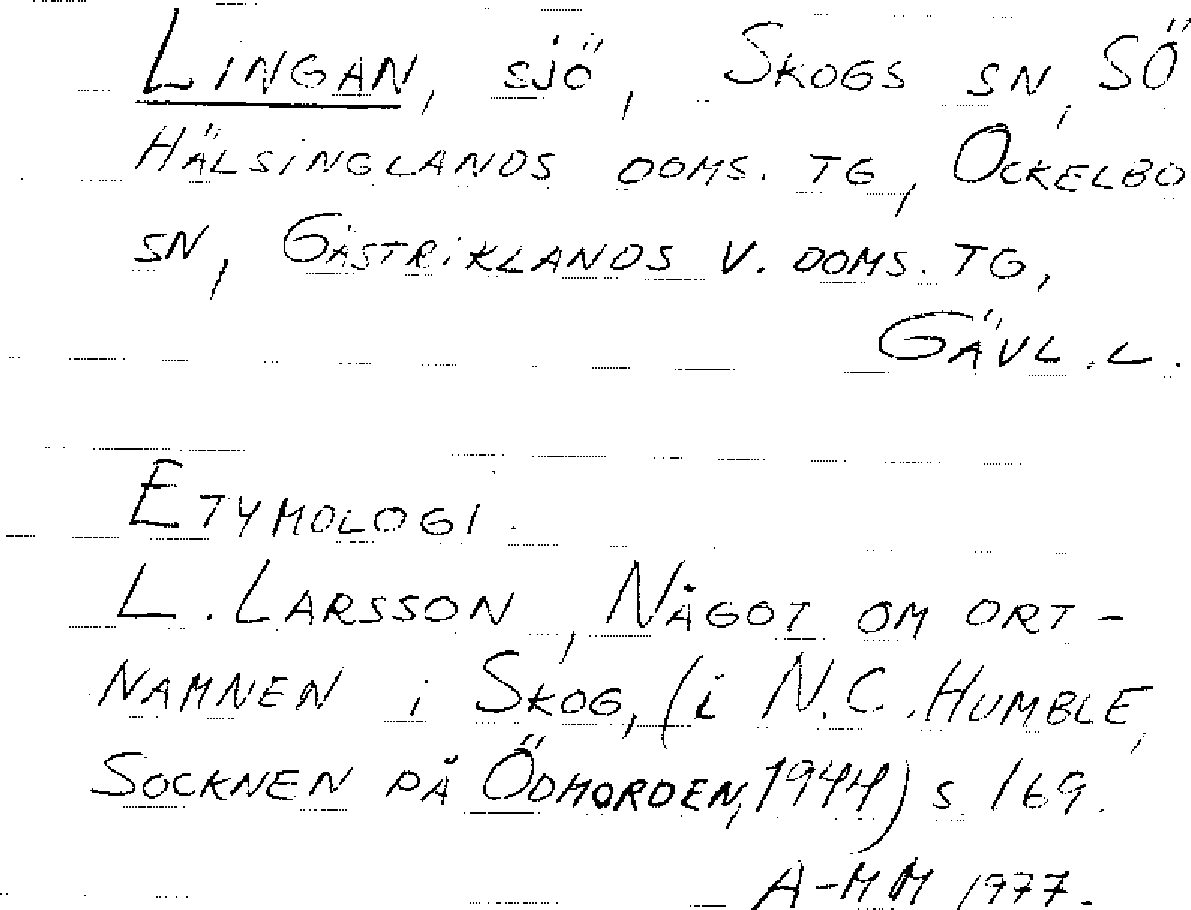 Lingan, sjö, Skogs sn, SÖ
Hälsinglands doms. tg, Ockelbo
sn, Gästriklands v. doms. tg,
Gävl. l.
Etymologi.
L. Larsson, Något om ort-
namnen i Skog, (i N.C. Humble,
Socknen på Ödmorden, 1944) s 169.
A-MM 1977.